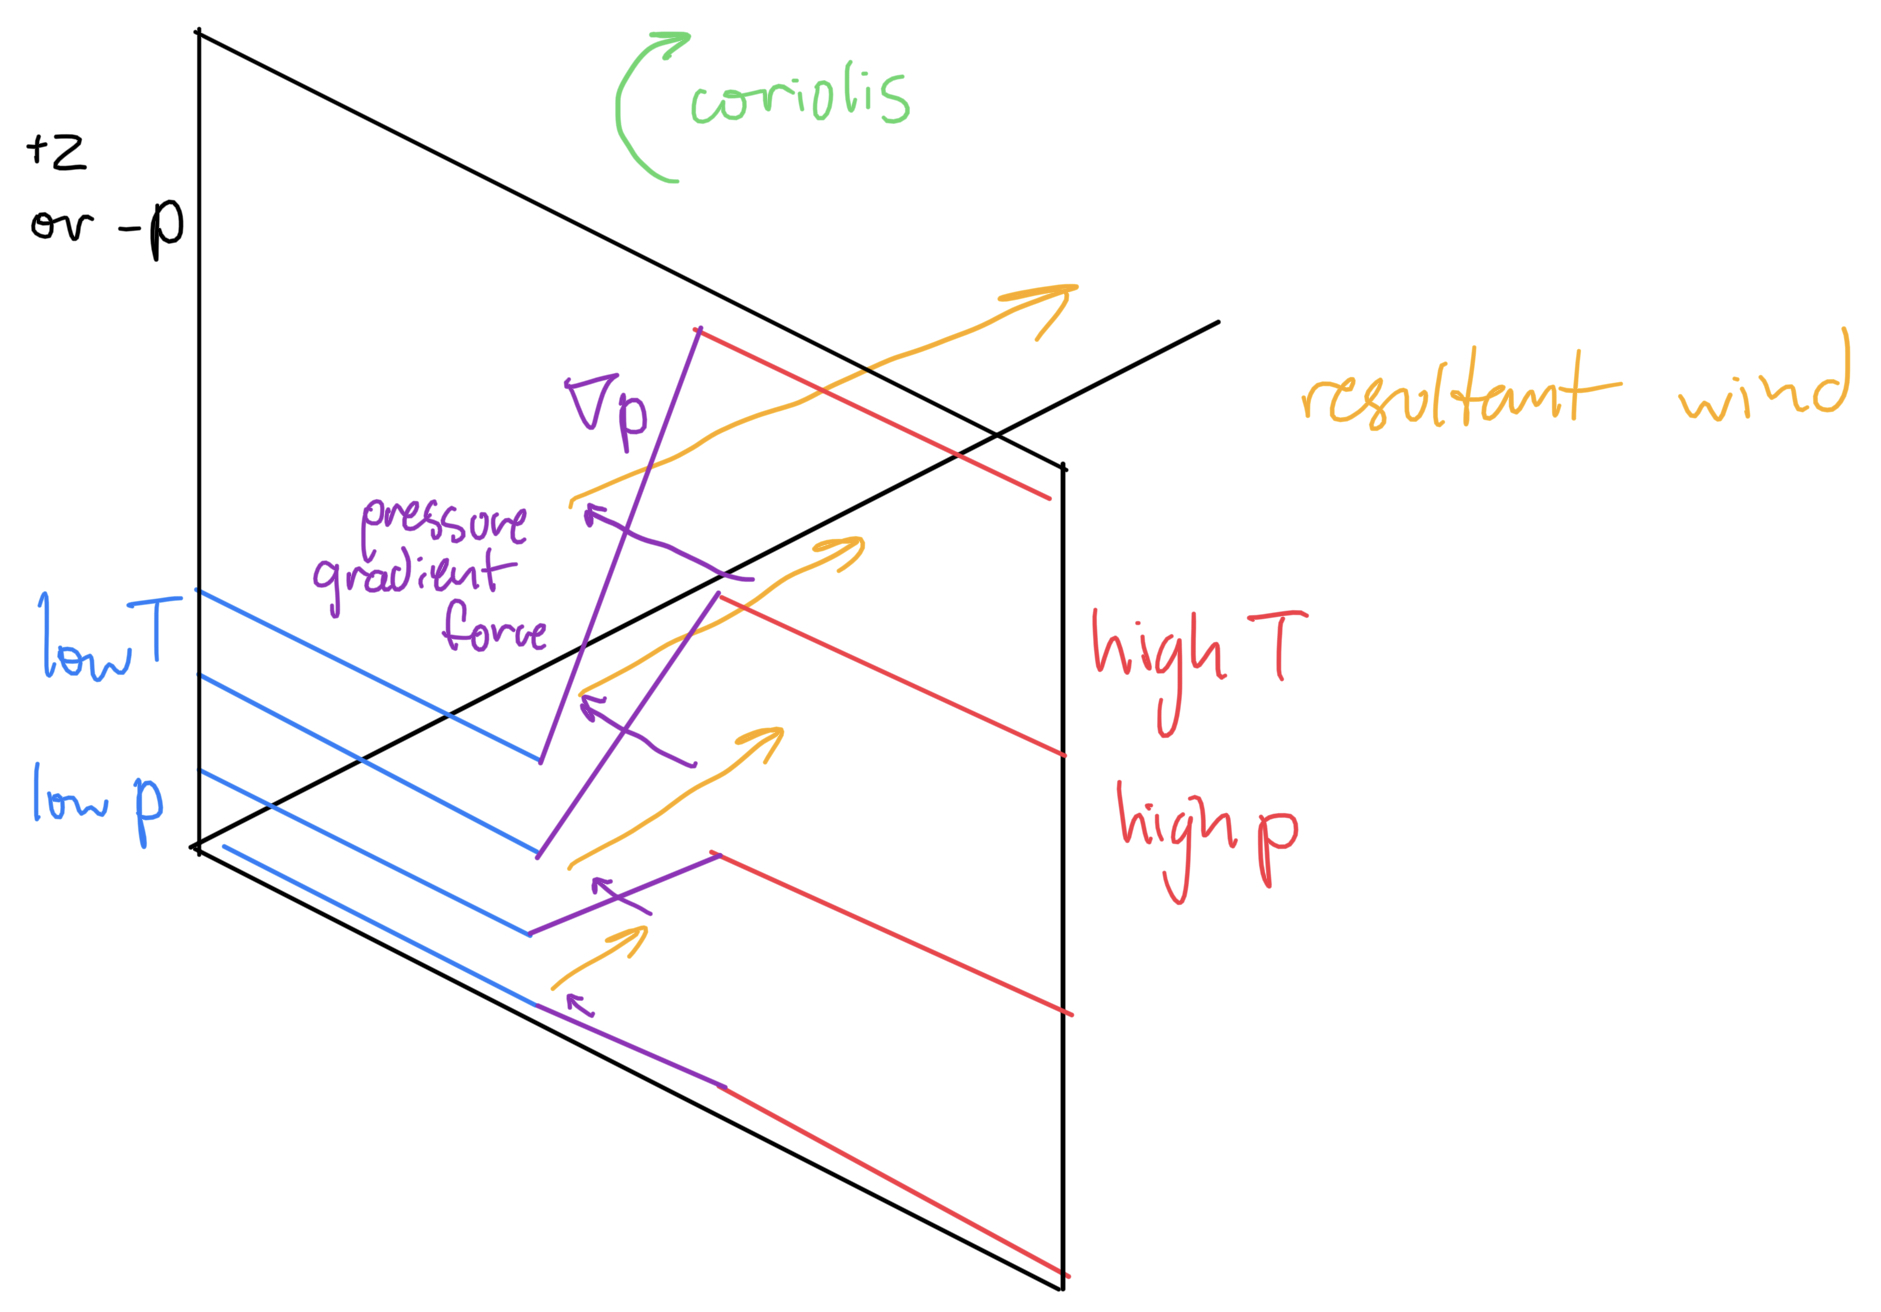 coriolis
+z
or -p
∇p
resultant wind
pressure
gradient
force
low T
high T
low p
high p